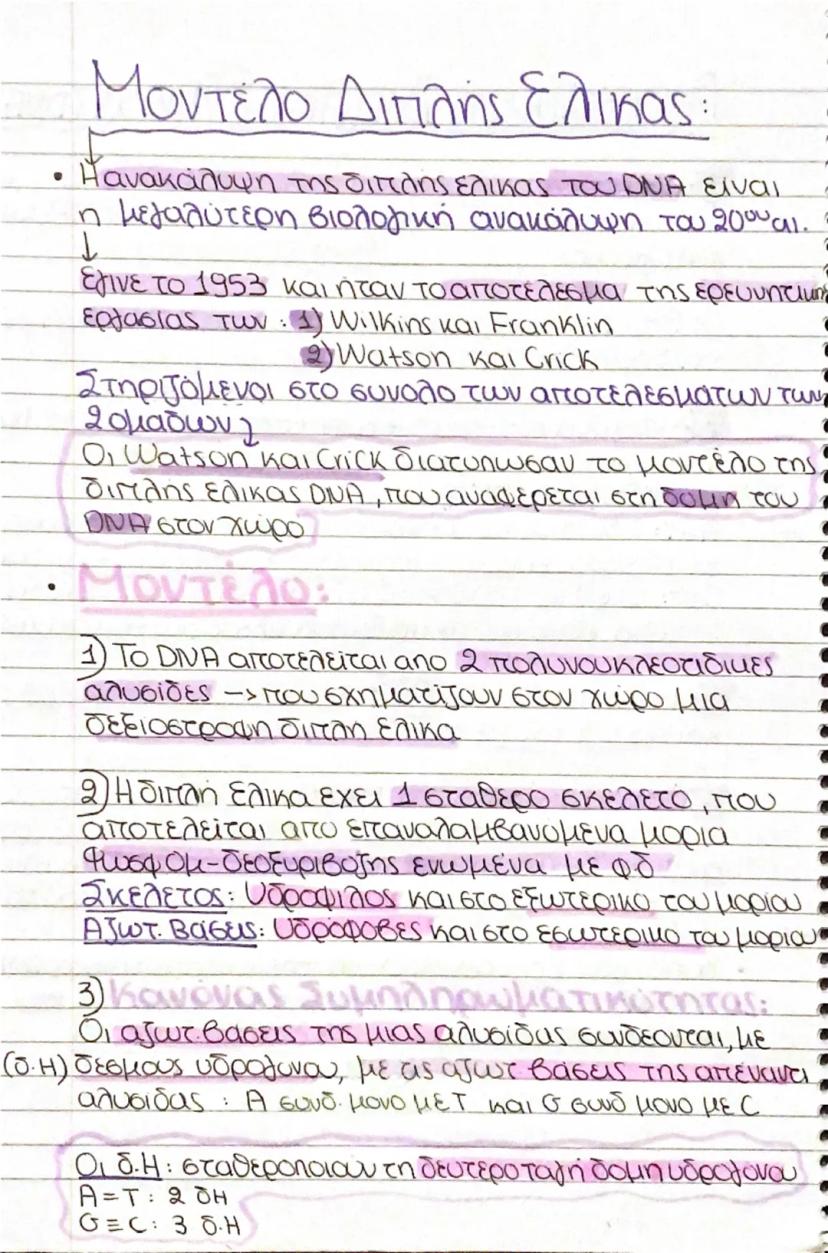 Μοντέλο Διπλής Έλικας:
• Η ανακάλυψη της διπλής έλικας του DNA είναι
η μεγαλύτερη βιολογική ανακάλυψη του 20ου αι.
↓
έγινε το 1953 και ήταν το αποτέλεσμα της ερευνητικης
εργασίας των : 1) Wilkins και Franklin
2) Watson και Crick
Στηριζόμενοι στο συνολο των αποτελεσματων των
2 ομαδων
Οι Watson και Crick διατυπωσαν το μοντέλο της
διπλής έλικας DNA, που αναφέρεται στη δομη του
DNA στον χώρο
• Μοντέλο:
1) Το DNA αποτελείται απο 2 πολυνουκλεοτιδικες
αλυσίδες –> που σχηματίζουν στον χώρο μια
δεξιοστροφη διπλη έλικα
2) Η διπλή έλικα εχει 1 σταθερο σκελετο, που
αποτελείται απο επαναλαμβανομενα μορια
Φωσφομ-δεοξυριβοζης ενωμένα με φδ
Σκελετος: Υδροφιλος και στο εξωτερικο του μοριου
Αζωτ. βάσεις: Υδρόφοβες και στο εσωτερικο του μοριου
3) Κανόνας Συμπληρωματικότητας:
Οι αζωτ. βασεις της μιας αλυσίδας συνδεονται, με
(δ.Η) δεσμους υδρογονου, με τις αζωτ βασεις της απέναντι
αλυσιδας : Α συνδ. μονο με Τ και G συνδ μονο με C
Οι δ.Η : σταθεροποιουν τη δευτεροταγή δομη υδρογονου
A=T : 2 δΗ
G≡C : 3 δ.Η